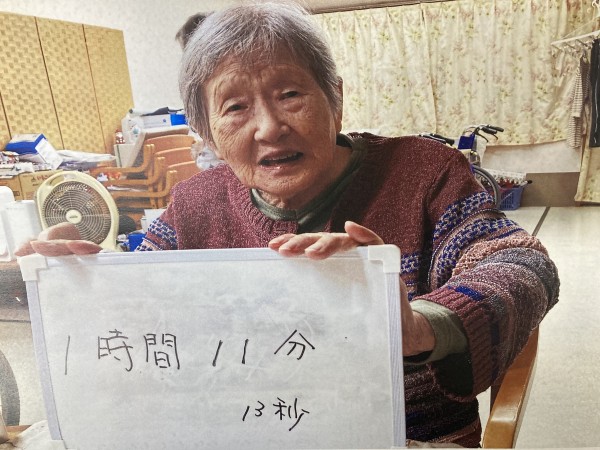 1時間 11分
13秒